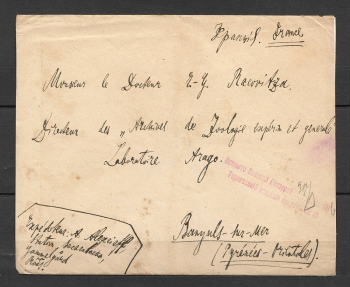 Франція. France
Monsieur le Docteur E-G. Racovitza
Directeur des „Archives de Zoologie expérim et générale
Laboratoire Arago.
Banyuls-sur-Mer
(Pyrénées-Orientales).
Expéditeur: A. Alexeieff